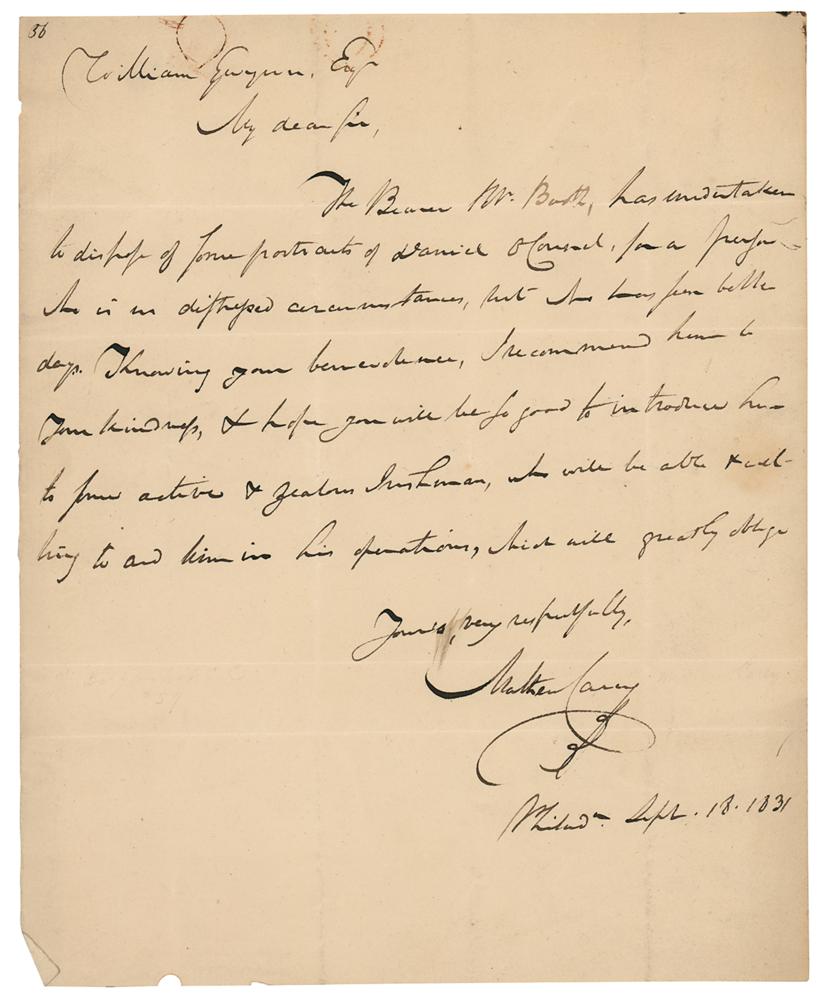 36
William Gwynn, Esqr
My dear Sir,
The Bearer Mr. Booth, has undertaken
to dispose of some portraits of Daniel OConnel, for a person
who is in distressed circumstances, but who has seen better
days. Knowing your benevolence, I recommend him to
your kindness, & hope you will be so good to introduce him
to some active & zealous Irishman, who will be able & wil-
ling to aid him in his operations, which will greatly oblige
Yours, very respectfully,
Mathew Carey
Philada. Sept. 18. 1831